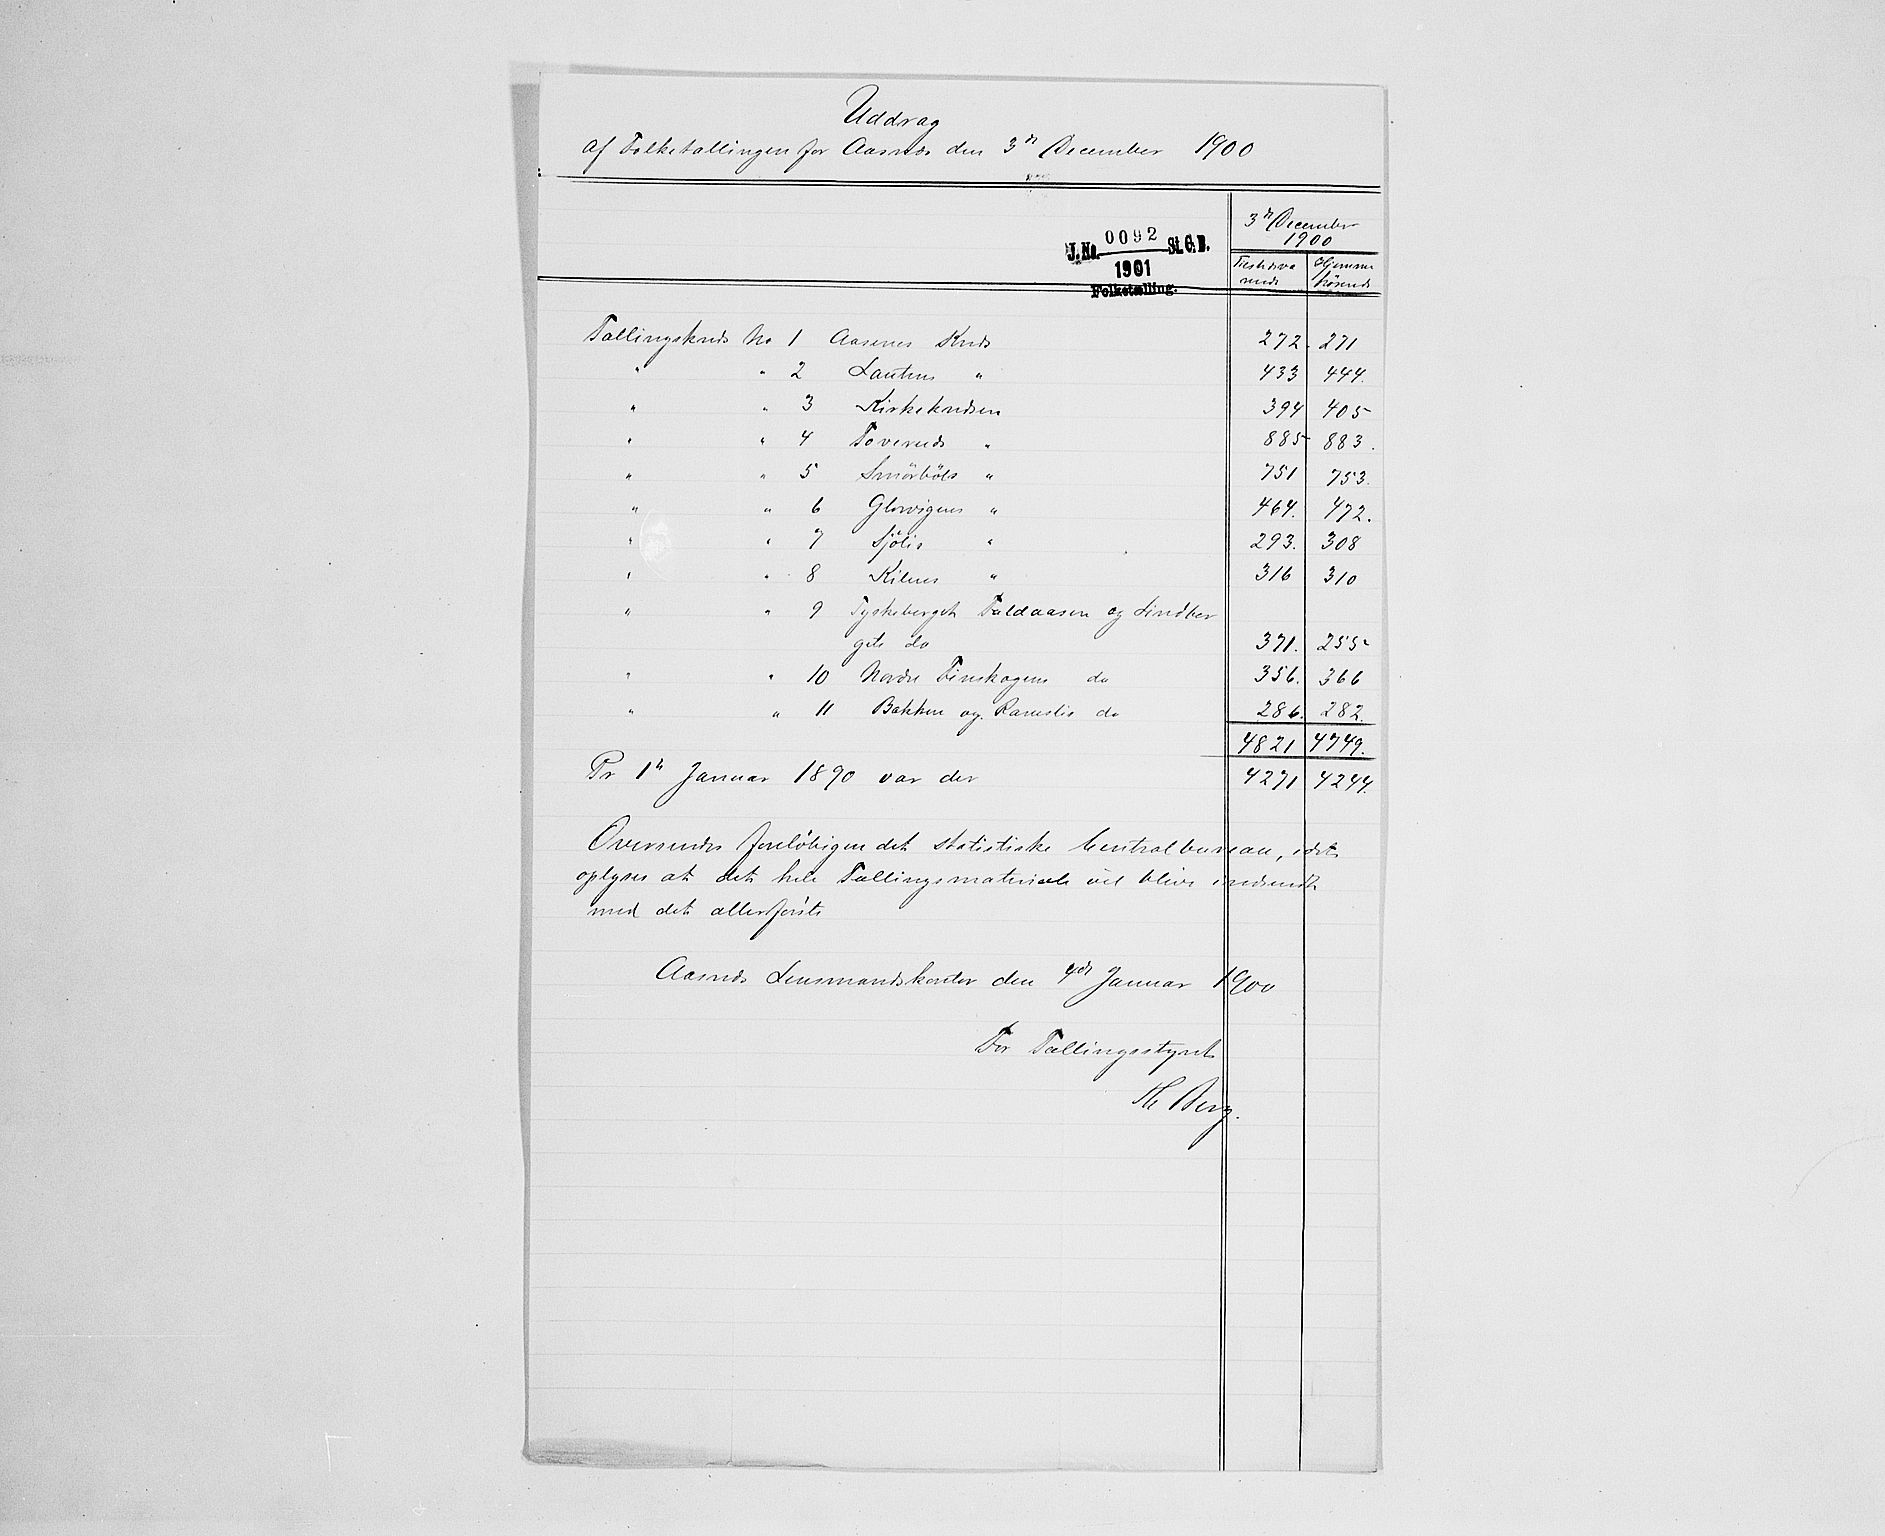 Uddrag
af Folketællingen for Aasnæs den 3de December 1900
J.No. 0092 St. C. B.
1901
Folketælling.
3de December
1900
Tilstedeværende Hjemmehørende
Tællingskreds No 1 Aasenes Kreds 272. 271
" " 2 Lautens " 433 444.
" " 3 Kirkekredsen 394 405
" " 4 Toveruds " 885 883.
" " 5 Smörböls " 751 753.
" " 6 Glorvigens " 464. 472.
" " 7 Sjölis " 293. 308
" " 8 Kilens " 316 310
" " 9 Tyskeberget Faldaasen og Lindber
gets do 371. 255
" " 10 Nordre Finskogens do 356. 366
" " 11 Bakken og do 286. 282.
4821 4749.
Pr 1ste Januar 1890 var der 4271 4244.
Oversendes foreløbigen det statistiske Centralbureau, idet
oplyses at det hele Tællingsmateriale vil blive indsendt
med det allerførste
Aasnæs Lensmandskontor den 4de Januar 1900
For Tællingsstyret
Berg.